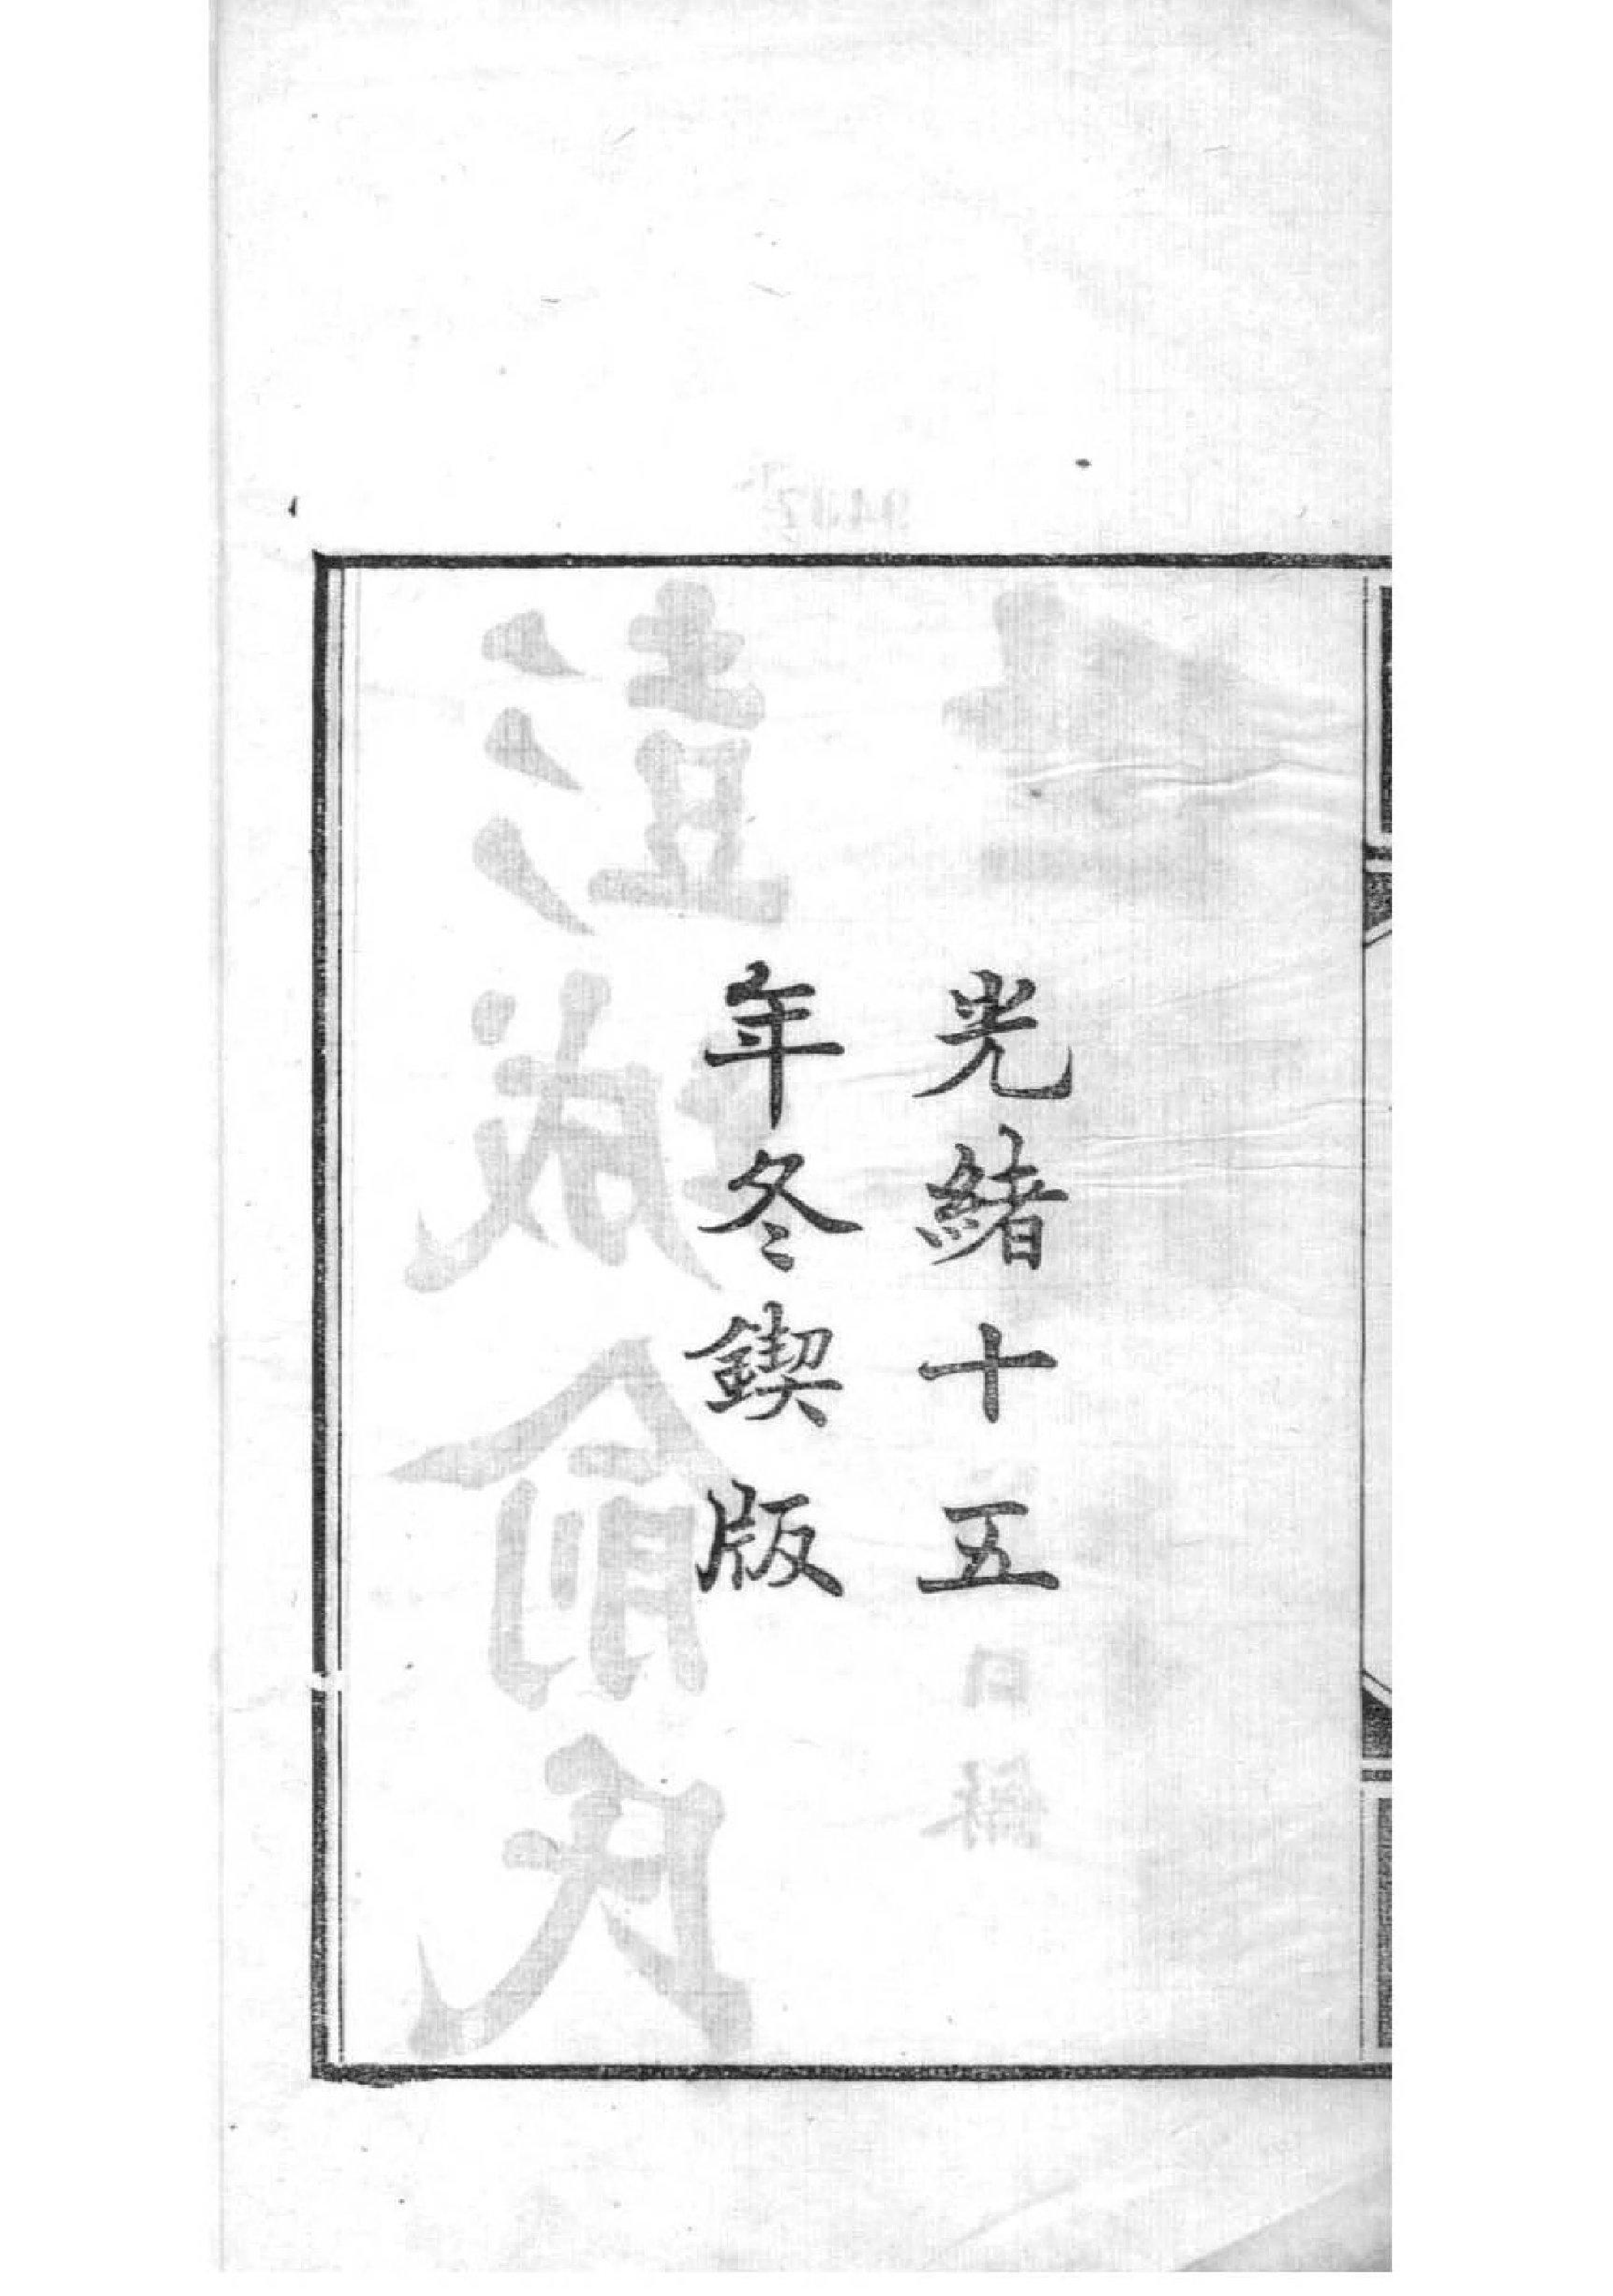 光緒十五
年冬鍥版